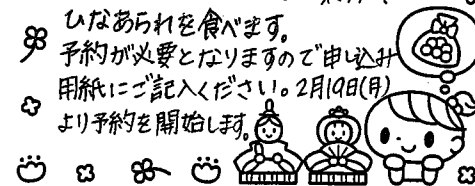 ひなあられを食べます。
予約が必要となりますので申し込み
用紙にご記入ください。2月19日(月)
より予約を開始します。